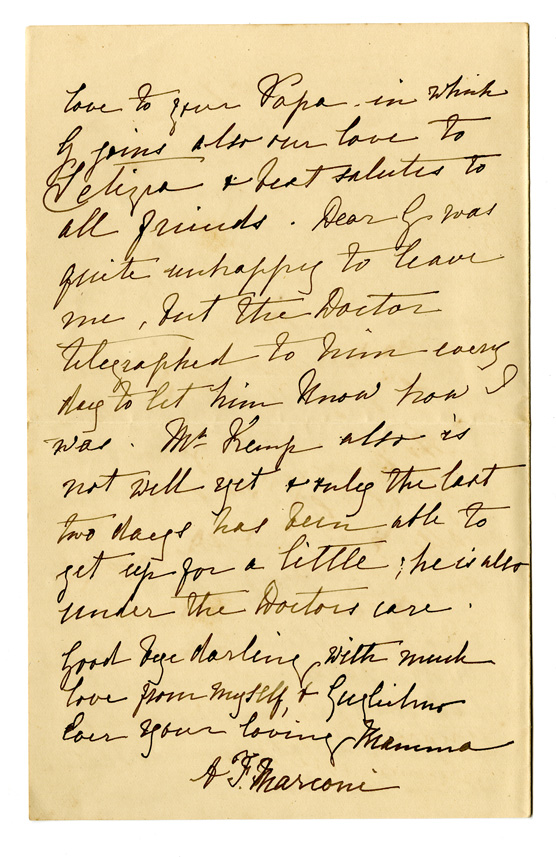 love to your Papa. in which
G joins also our love to
Letizia & best salutes to
all friends. Dear G. was
quite unhappy to leave
me, but the Doctor
telegraphed to him every
day to let him know how I
was. Mr Kemp also is
not well yet & only the last
two days has been able to
get up for a little; he is also
under the Doctors care.
Good bye darling, with much
love from myself, & Guglielmo
Ever your loving Mamma
A F. Marconi